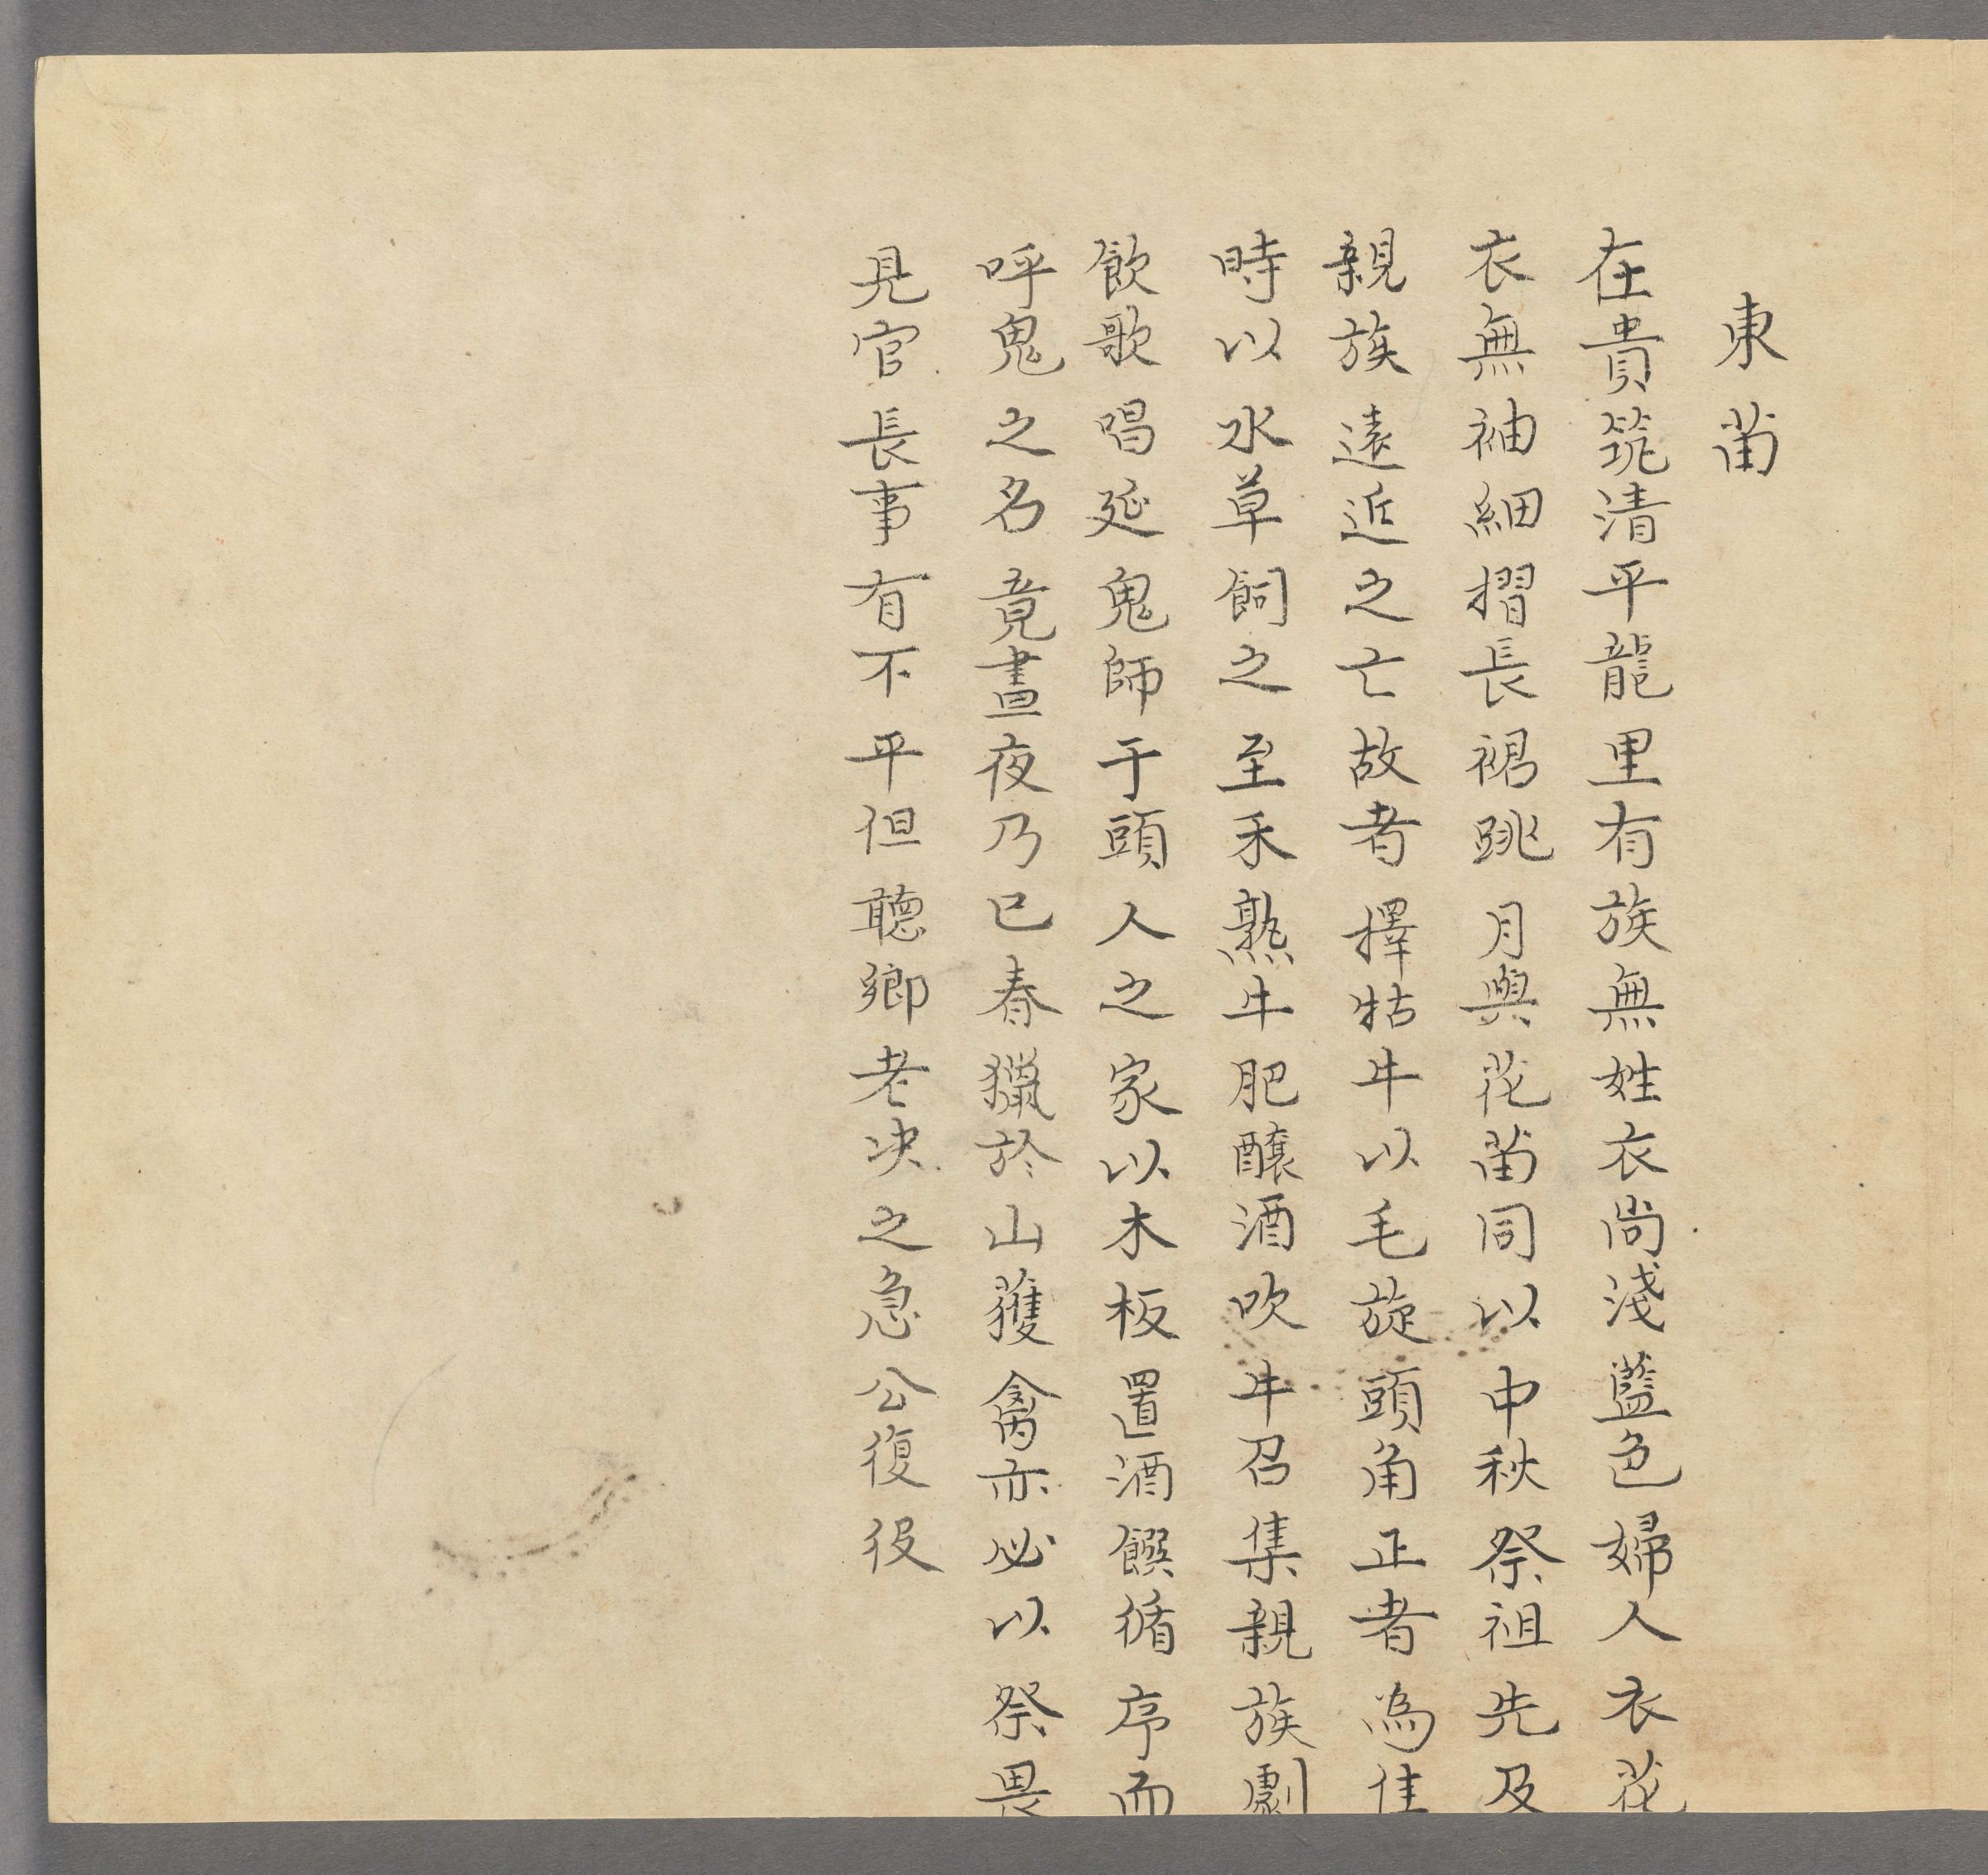 東苗
在貴筑清平龍里有族無姓衣尚淺藍色婦人衣花
衣無袖細摺長裙跳月與花苗同以中秋祭祖先及
親族遠近之亡故者擇牯牛以毛旋頭角正者為佳
時以水草飼之至禾熟牛肥釀酒吹牛召集親族劇
飲歌唱延鬼師于頭人之家以木板置酒饌循序而
呼鬼之名竟晝夜乃已春獵於山獲禽亦必以祭畏
見官長事有不平但聽鄉老決之急公復役